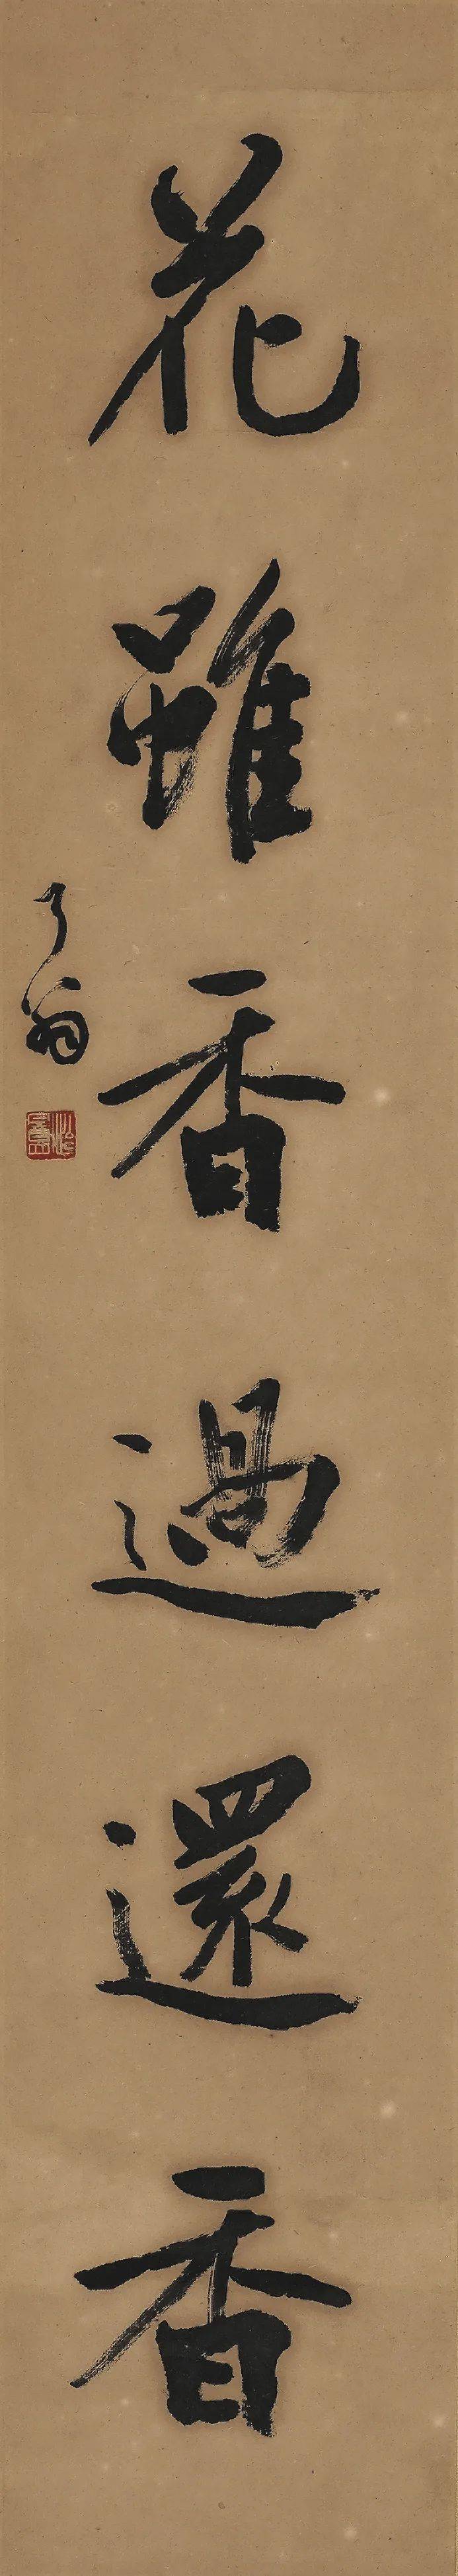 花雖香過還香
了翁